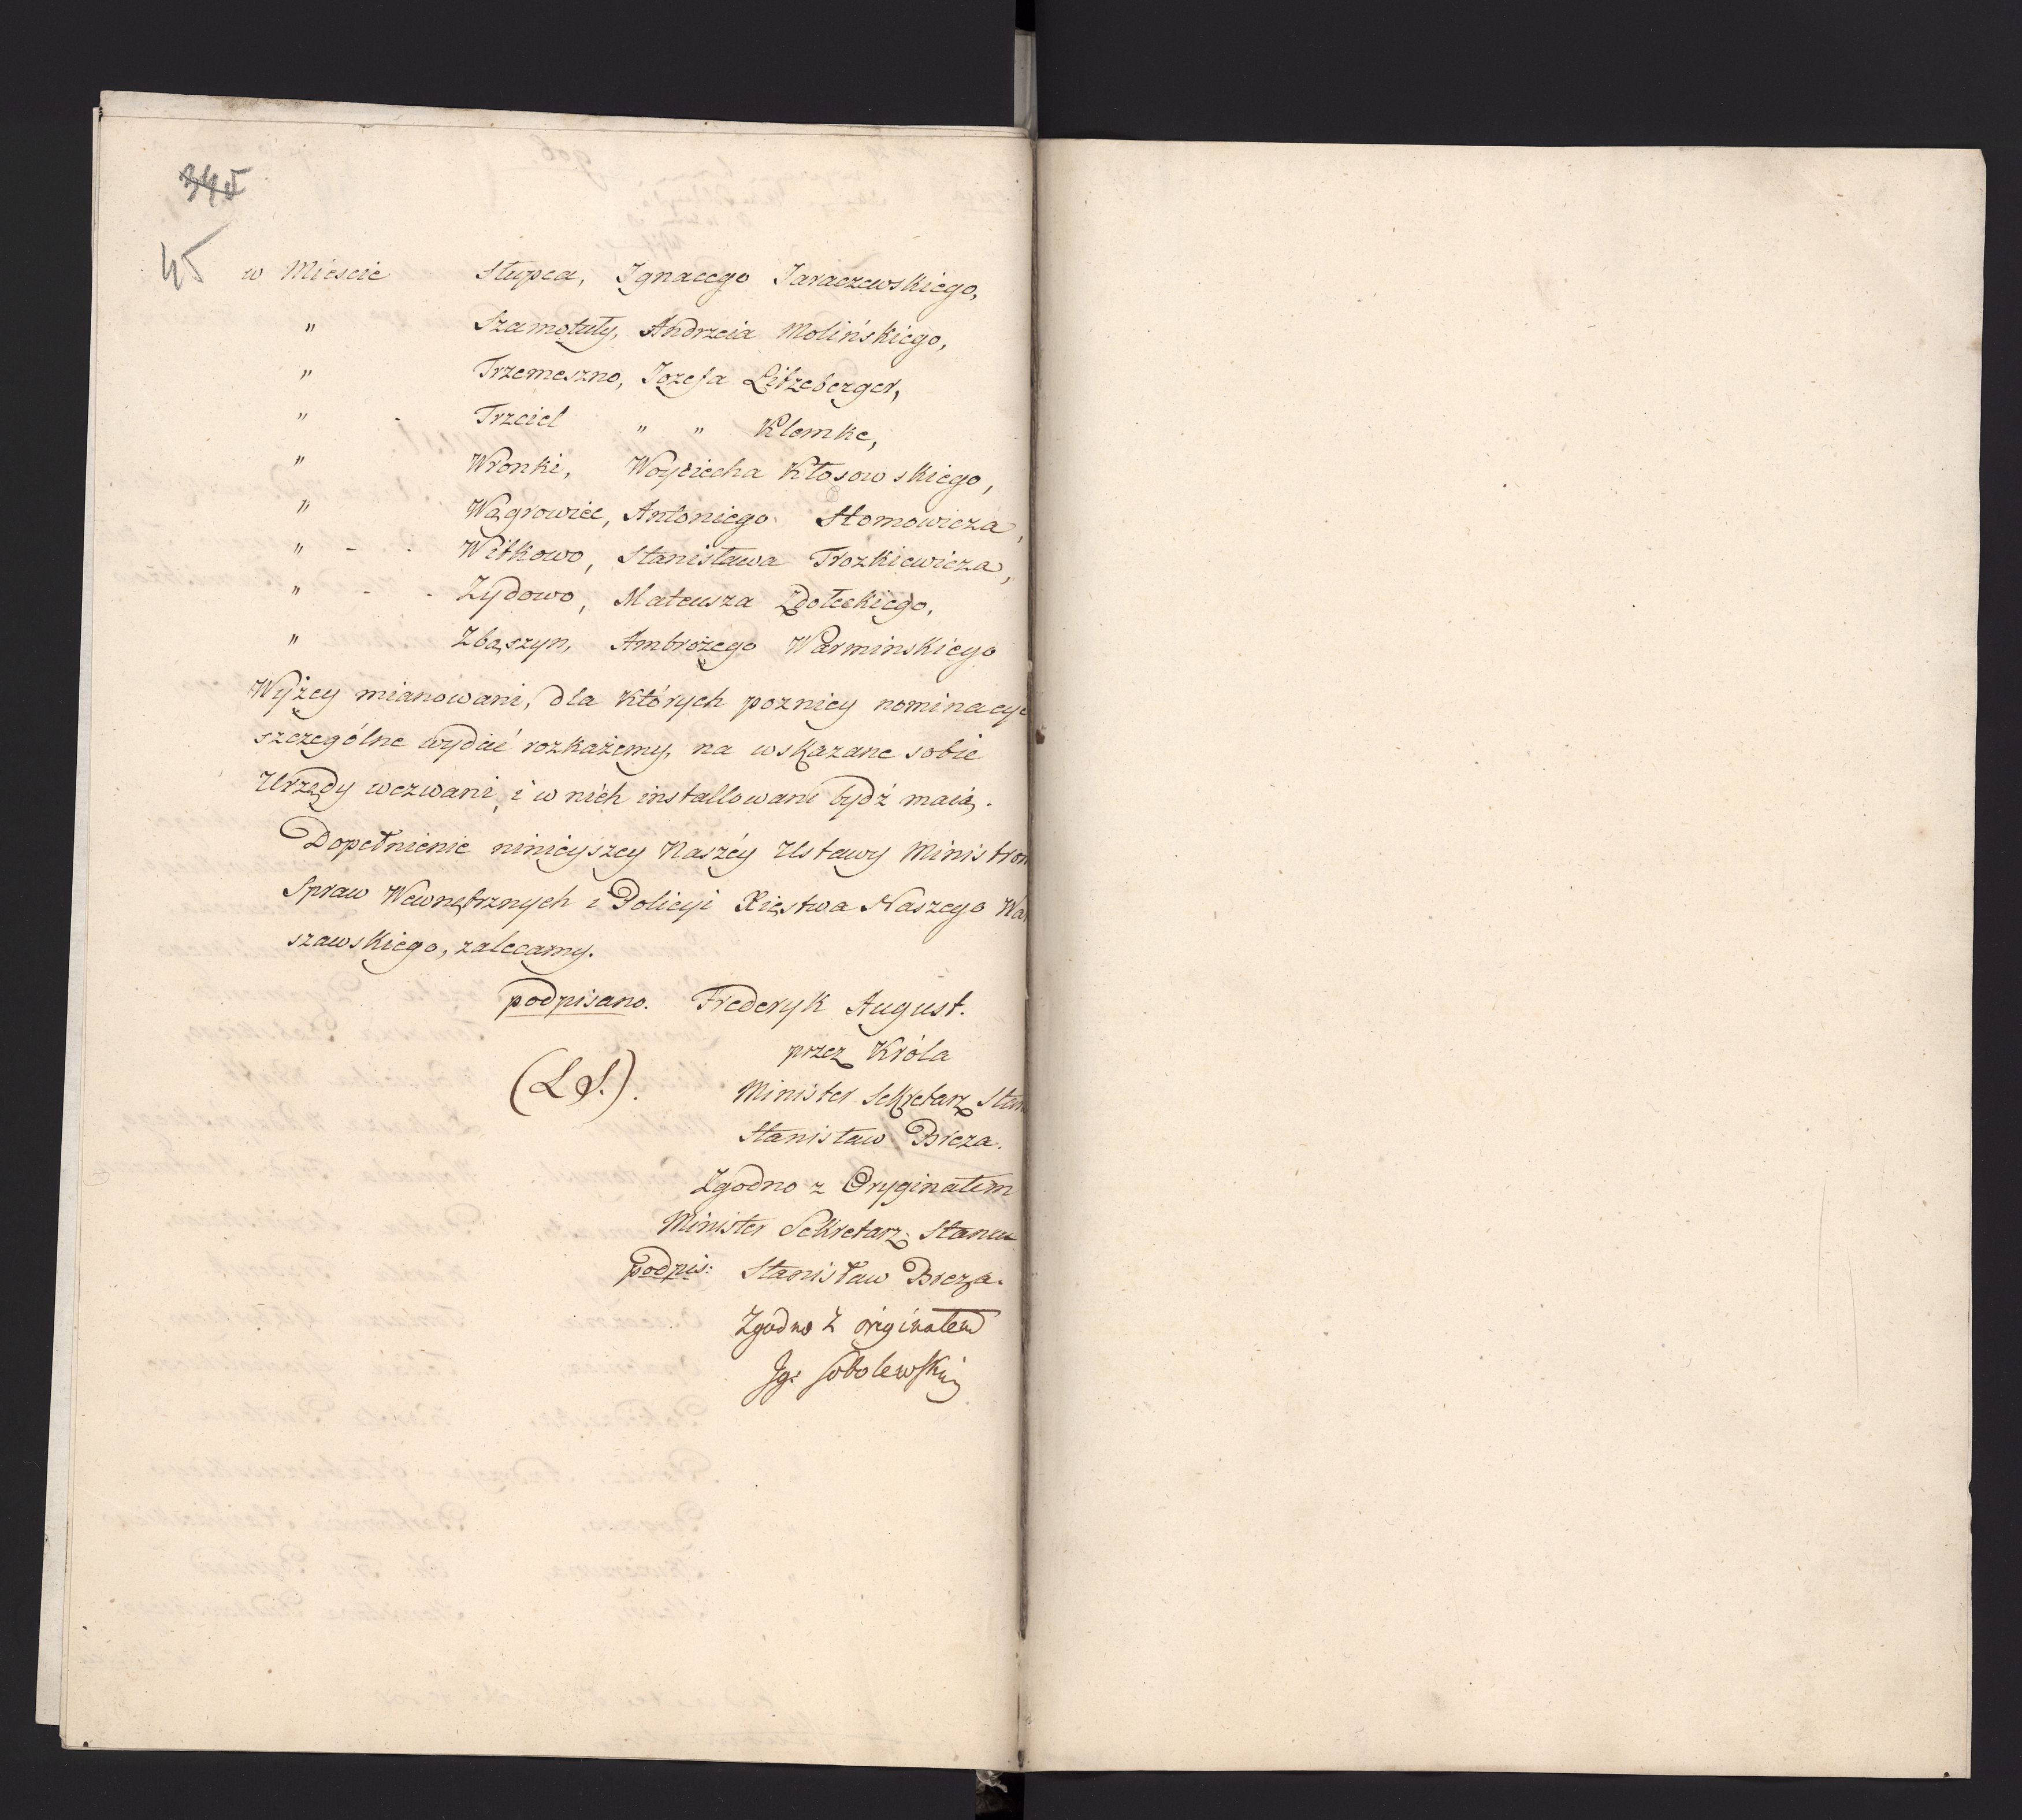 345
45
w Mieście Słupca, Ignacego Jaraczewskiego,
" Szamotuły, Andrzeia Molińskiego,
" Trzemeszno, Jozefa Litzeberger,
" - Trzciel " " Klemke,
" Wronki, Woyciecha Kłosowskiego,
" Wągrowiec, Antoniego Słomowicza,
" - - Witkowo, Stanisława Trozkiewicza,
" - - Zydowo, Mateusza Zdołeckiego,
" Zbąszyn, Ambrożego Warminskiego
Wyżey mianowani, dla których pozniey nominacye
szczególne wydać rozkażemy, na wskazane sobie
Urzędy wezwani, i w nich installowani bydź maią.
Dopełnienie ninieyszey Naszéy Ustawy Ministrom
Spraw Wewnętrznych i Policyi Xięstwa Naszego War
szawskiego, zalecamy.
podpisano. Frederyk August.
przez Króla
(L S.). Minister Sekretarz Stanu
Stanisław Breza.
Zgodno z Oryginałem
Minister Sekretarz Stanu
podpis: Stanisław Breza.
Zgodno z originałem
Ig: Sobolewski